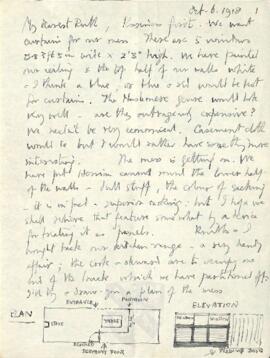 Oct. 6. 1918 1
My dearest Ruth, Business first. We want
curtains for our mess. There are 5 windows
3'6" wide x 2'3" high. We have painted
our ceiling & the top half of our walls white
- I think a blue, as blue as old would be best
for curtains. The Hasluemere genre would look
very well - are they outrageously expensive?
We needn't be very economical. Casement cloth
would do but I would rather have something more
interesting. The mess is getting on. We
have put up canvas round the lower half
of the walls - dull stuff, the colour of sacking
- it is in fact superior sacking; but I hope we
shall relieve that feature somewhat by a device
for treating it as panels.
I brought back our kitchen range - a very handy
affair; the cook-steward are to occupy one
end of the which we have partitioned off
I'll draw you a plan of the mess
PLAN
ENTRANCE
PARTITION
STOVE
TABLE
SERVING DOOR
ELEVATION
WINDOW